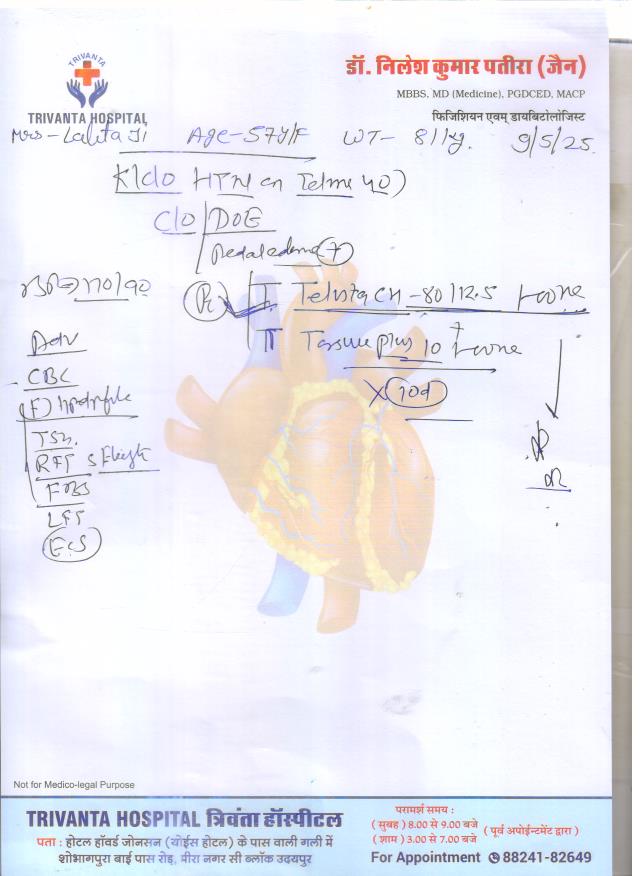 TRIVANTA
TRIVANTA HOSPITAL
डॉ. निलेश कुमार पतीरा (जैन)
MBBS, MD (Medicine), PGDCED, MACP
फिजिशियन एवम् डायबिटोलोजिस्ट
Mrs - Lalita Ji Age - 57Y/F WT - 81 kg. 9/5/25
K/c/o HTN on Telma 40)
C/O DOE
Pedal edema +
BP → 170/90
Rx
Telvita CH - 80/12.5
plus 10
X 10d
Adv
CBC
(F)
TSH
RFT
FBS
LFT
ECG
Not for Medico-legal Purpose
TRIVANTA HOSPITAL त्रिवंता हॉस्पीटल
पता : होटल हॉवर्ड जोनसन (योईस होटल) के पास वाली गली में
शोभागपुरा बाई पास रोड़, मीरा नगर सी ब्लॉक उदयपुर
परामर्श समय :
( सुबह ) 8.00 से 9.00 बजे
( शाम ) 3.00 से 7.00 बजे
( पूर्व अपोईन्टमेंट द्वारा )
For Appointment 88241-82649